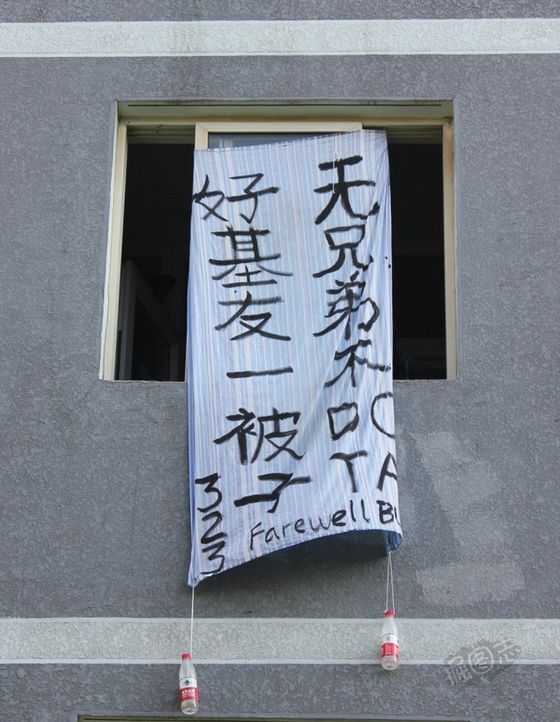 无兄弟不DOTA
好基友一被子
323
Farewell
掘图志